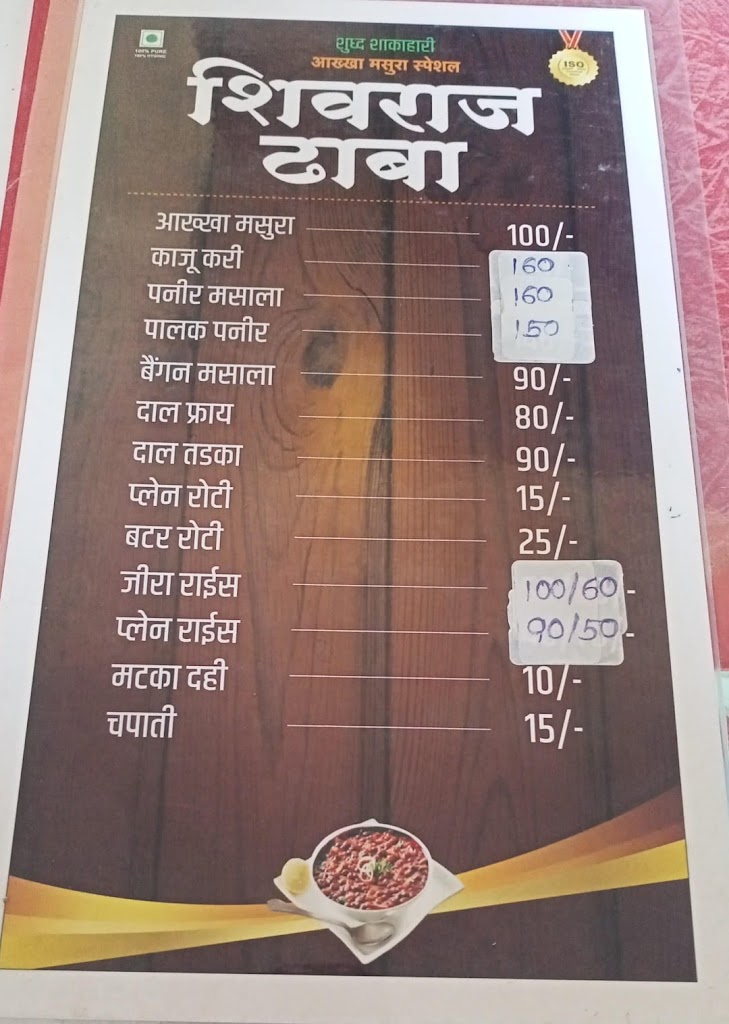 100% PURE
शुध्द शाकाहारी
आख्खा मसुरा स्पेशल
ISO
शिवराज
ढाबा
आख्खा मसुरा 100/-
काजू करी 160
पनीर मसाला 160
पालक पनीर 150
बैंगन मसाला 90/-
दाल फ्राय 80/-
दाल तडका 90/-
प्लेन रोटी 15/-
बटर रोटी 25/-
जीरा राईस 100/60 -
प्लेन राईस 90/50 -
मटका दही 10/-
चपाती 15/-